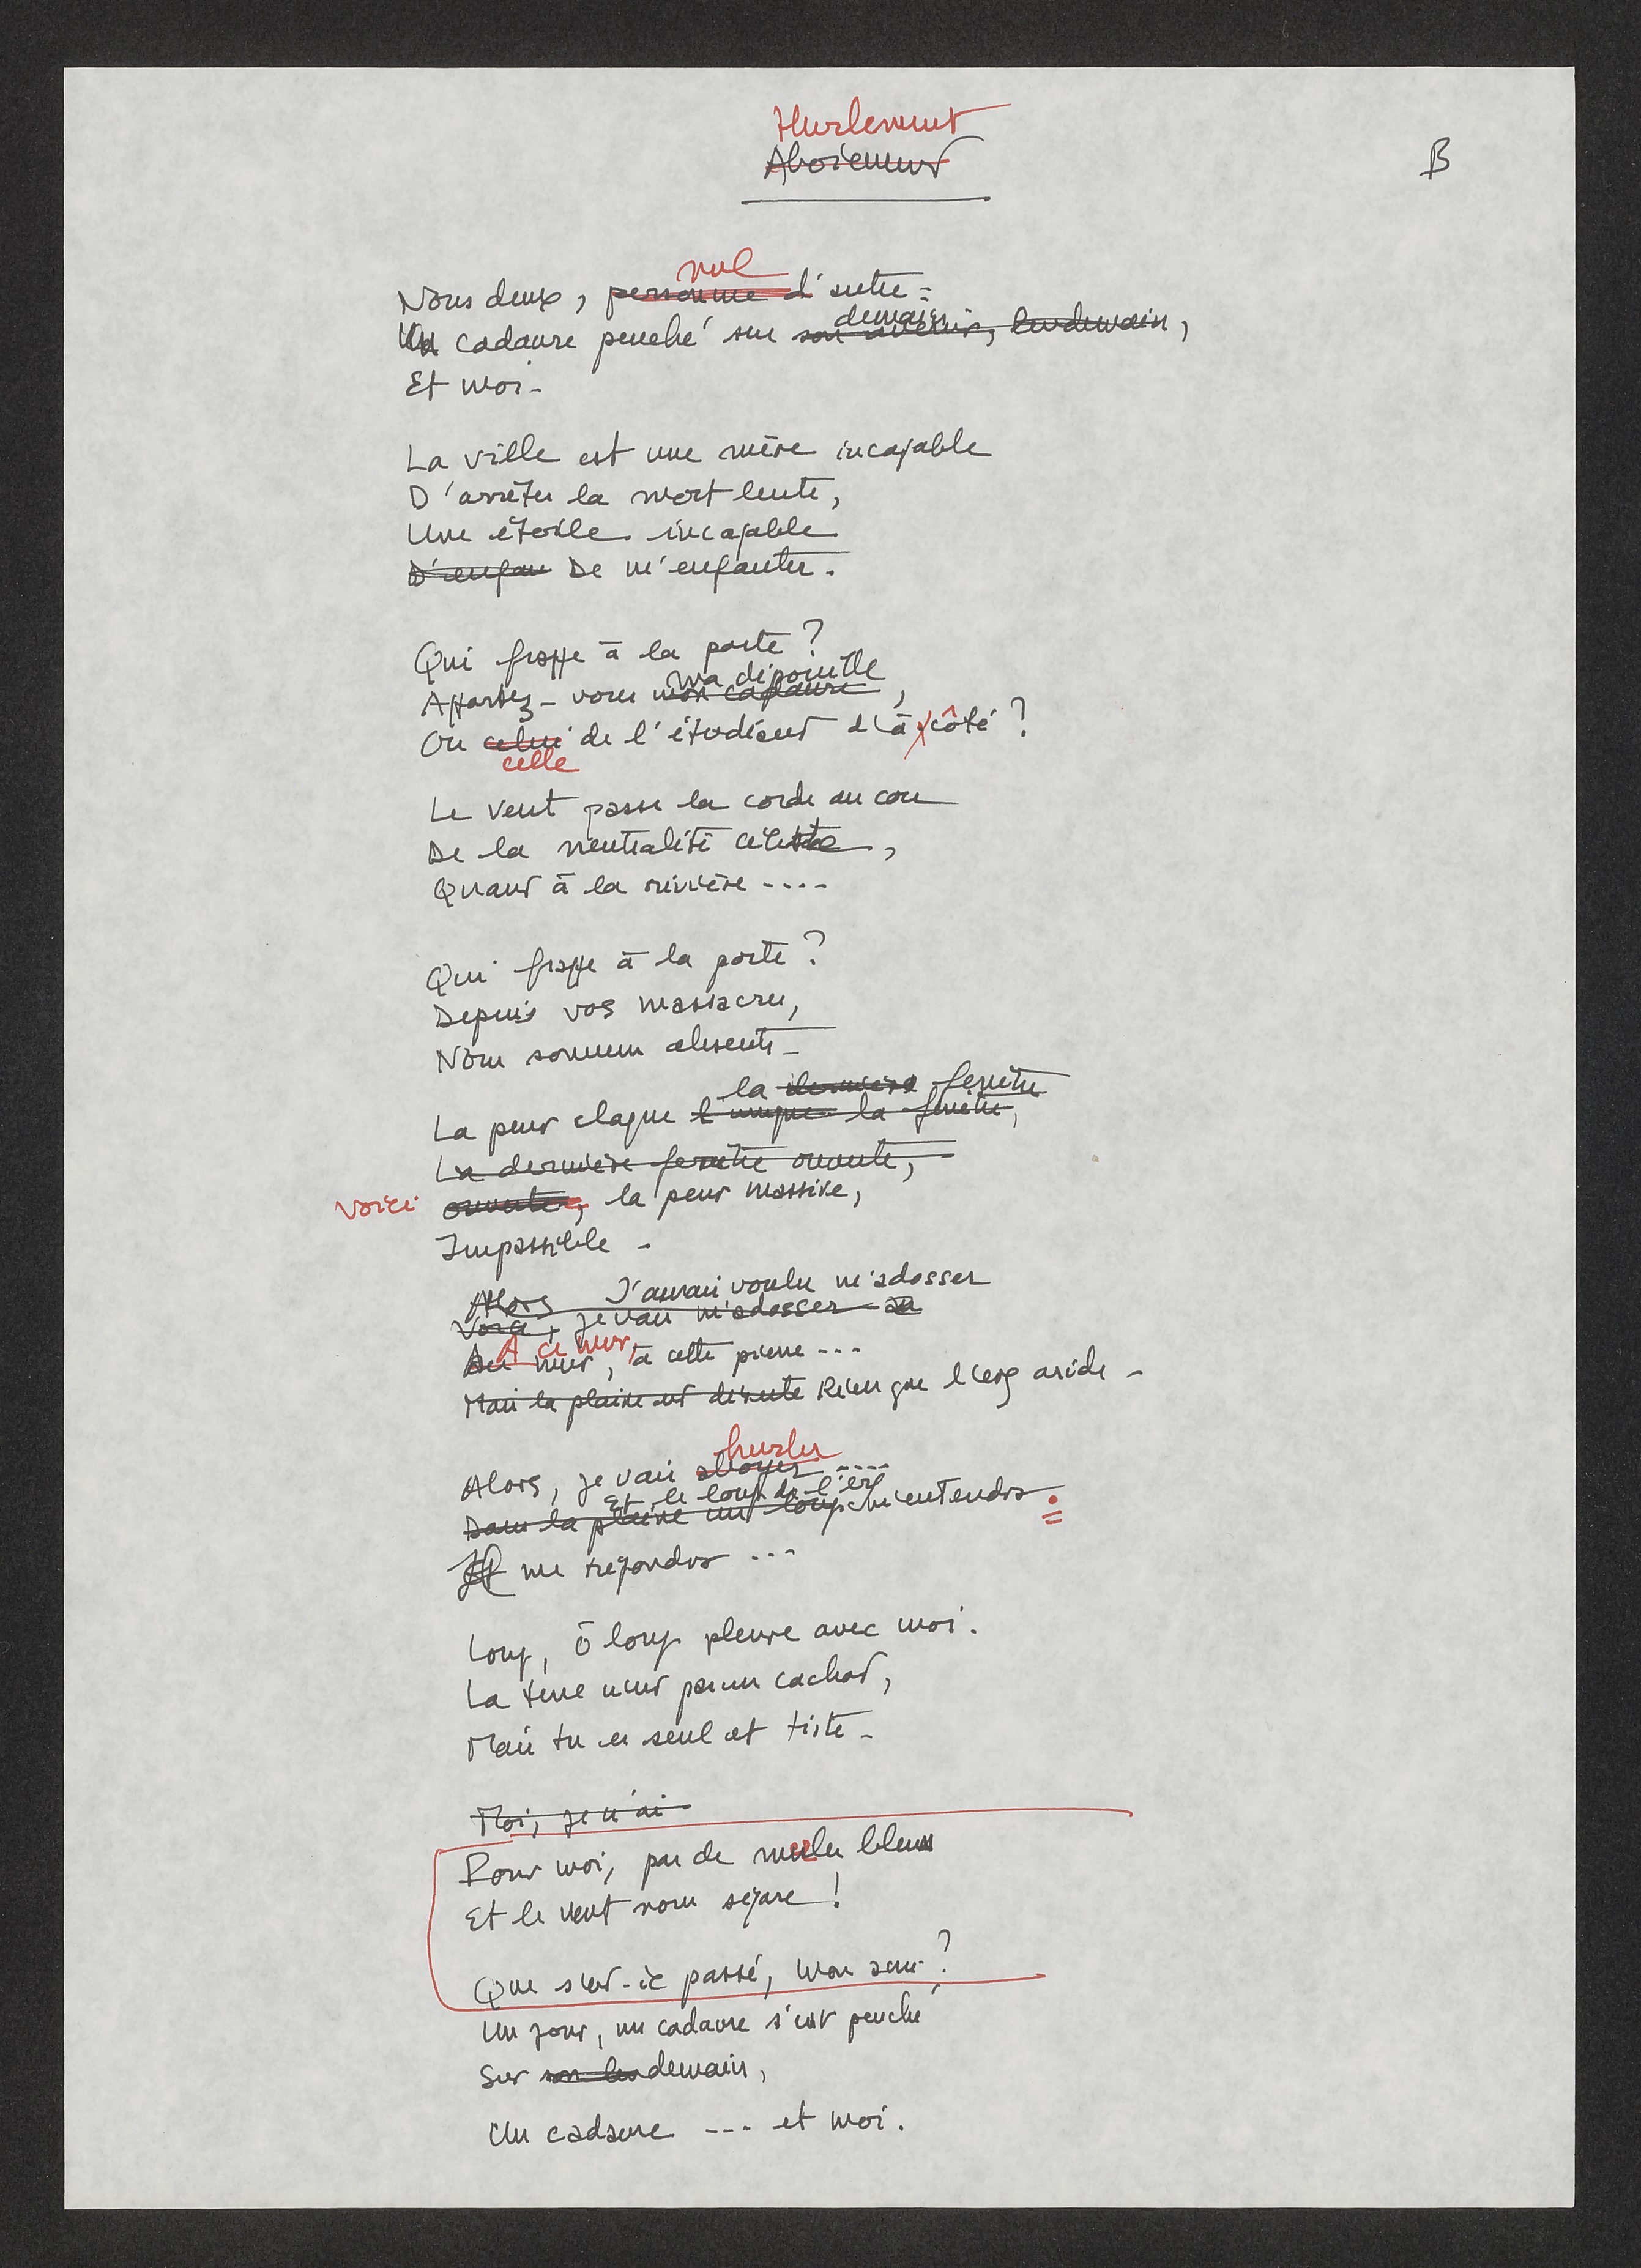 Hurlement
Aboiement
B
nul
Nous deux, personne d'autre :
demain
Un cadavre penché sur son avenir, lendemain,
Et moi -
La ville est une mère incapable
D'arrêter la mort lente,
Une étoile incapable
D'enfan De m'enfanter.
Qui frappe à la porte ?
ma dépouille
Apportez-vous mon cadavre,
Ou celui de l'étudiant d'à côté ?
celle
Le vent passe la corde au cou
De la neutralité céleste,
Quant à la rivière ....
Qui frappe à la porte ?
Depuis vos massacres,
Nous sommes absents -
la dernière fenêtre
La peur claque l'unique la fenêtre,
La dernière fenêtre ouverte,
Voici ouverte, la peur massive,
Impassible -
Alors J'aurais voulu m'adosser
Voici, je vais m'adosser au
A ce mur,
Au mur, à cette pierre ...
Mais la plaine est déserte Rien que l'erg aride -
hurler
Alors, je vais aboyer ....
Et le loup de l'erg
Dans la plaine un loup m'entendra .
Et me répondra ...
Loup, ô loup pleure avec moi.
La terre n'est pas un cachot,
Mais tu es seul et triste -
Moi, je n'ai
Pour moi, pas de merles bleus
Et le vent nous sépare !
Que s'est-il passé, mon ami ?
Un jour, un cadavre s'est penché
Sur son lendemain,
Un cadavre --- et moi.